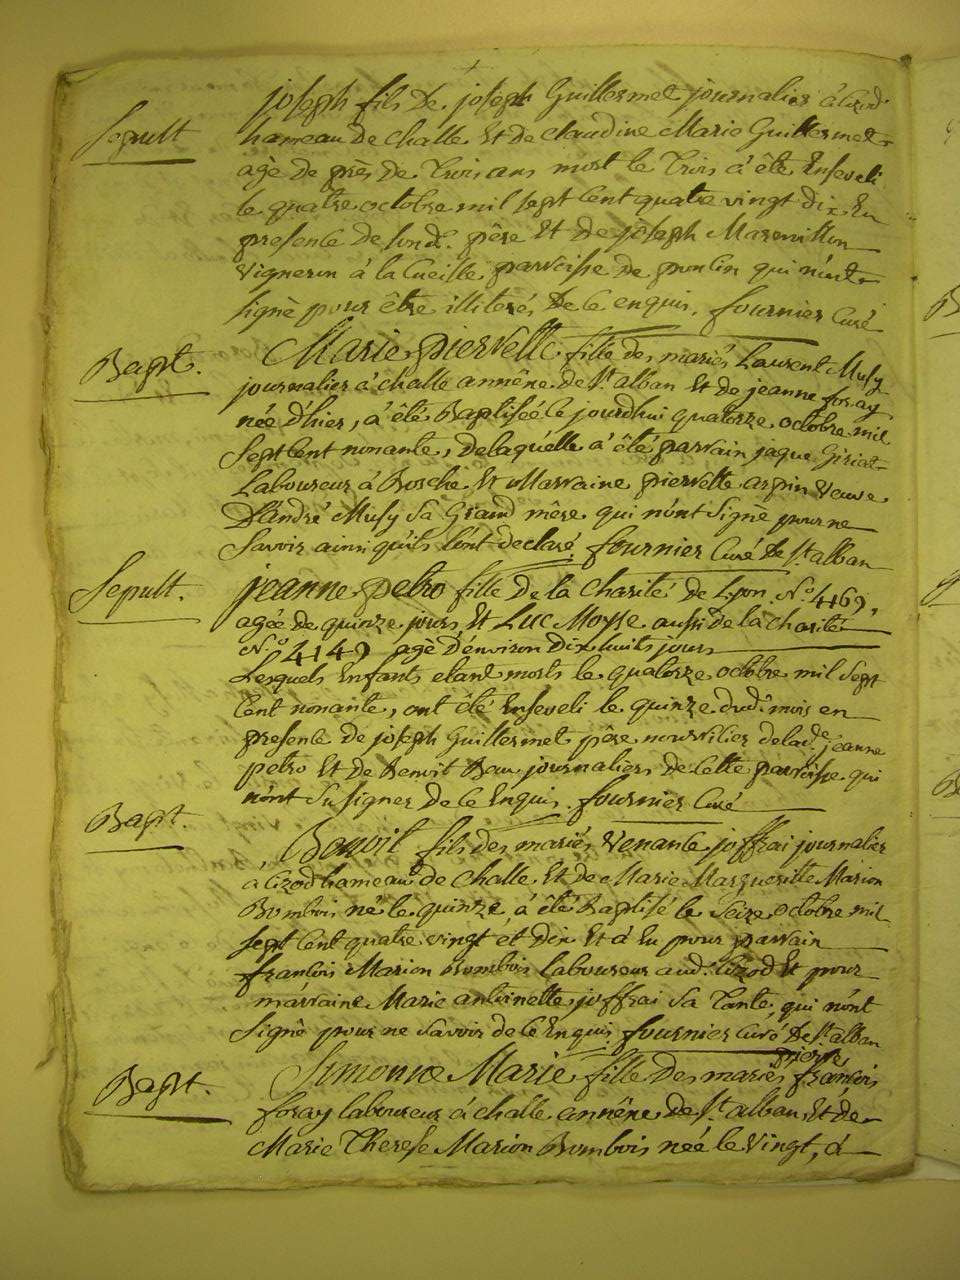 Sepult
joseph fils de joseph Guillermet journalier à Cizod
hameau de challe Et de claudine Marie Guillermet
agè de près de Trois ans mort le Trois à été Enseveli
le quatre octobre mil sept Cent quatre vingt dix En
presence de sond. père Et de joseph Maremillon
vigneron à la Cueille parroisse de poncin qui n'ont
signè pour être illiterés de ce enquis. fournier Curé
Bapt.
Marie pierrette fille des mariés Laurent Musy
journalier à challe annêne de St. alban Et de jeanne foray
née d'hier, à été Baptisée le jourdhui quatorze octobre mil
Sept Cent nonante, delaquelle à été parrain jaque Giriat
Laboureur à Bosche Et Marraine pierrette arpin veuve
D'andré Musy Sa Grand mère qui n'ont Signé pour ne
Savoir ainsi qu'ils l'ont declaré. fournier Curé de St. alban
Sepult.
jeanne petro fille de la Charité de Lyon N.o 4469,
agée de quinze jours Et Luc Moyse aussi de la charité
N.o 4149 agé d'environ dix huits jours
Lesquels Enfants etant morts le quatorze octobre mil Sept
Cent nonante, ont été Enseveli le quinze dud. mois en
presence de joseph Guillermet père nourricier de lad.e jeanne
petro Et de Benoit journaliers de Cette parroisse qui
n'ont Su signer de ce Enquis. fournier Curé
Bapt.
Benoit fils des mariés Venance joffrai journalier
à Cizod hameau de Challe Et de Marie Margueritte Marion
Bombois né le quinze, à été Baptisé le Seize octobre mil
sept Cent quatre vingt et dix Et à Eu pour parrain
francois Marion Bombois laboureur aud. Cizod Et pour
marraine Marie antoinette joffrai Sa Tante, qui n'ont
Signé pour ne Savoir de ce Enquis fournier Curé de St. alban
Bapt.
Simonne Marie fille des mariés pierre francois
foray laboureur à challe annêne de St. alban Et de
Marie Therese Marion Bombois née le Vingt, à